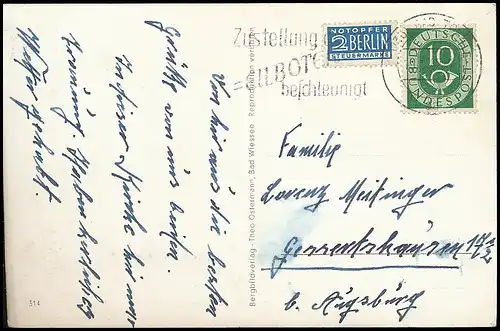 Von hier aus die besten
Grüße von uns beiden.
hier
Haben herrliches
Wetter gehabt.
Bergbildverlag - Theo Ostermann, Bad Wiessee Reproduktion verboten
514
Zustellung
EILBOTE
beschleunigt
NOTOPFER
2 BERLIN
STEUERMARKE
DEUTSCHE
10
BUNDESPOST
Familie
Lorenz Meitinger
Gessertshausen 17 1/2
b. Augsburg